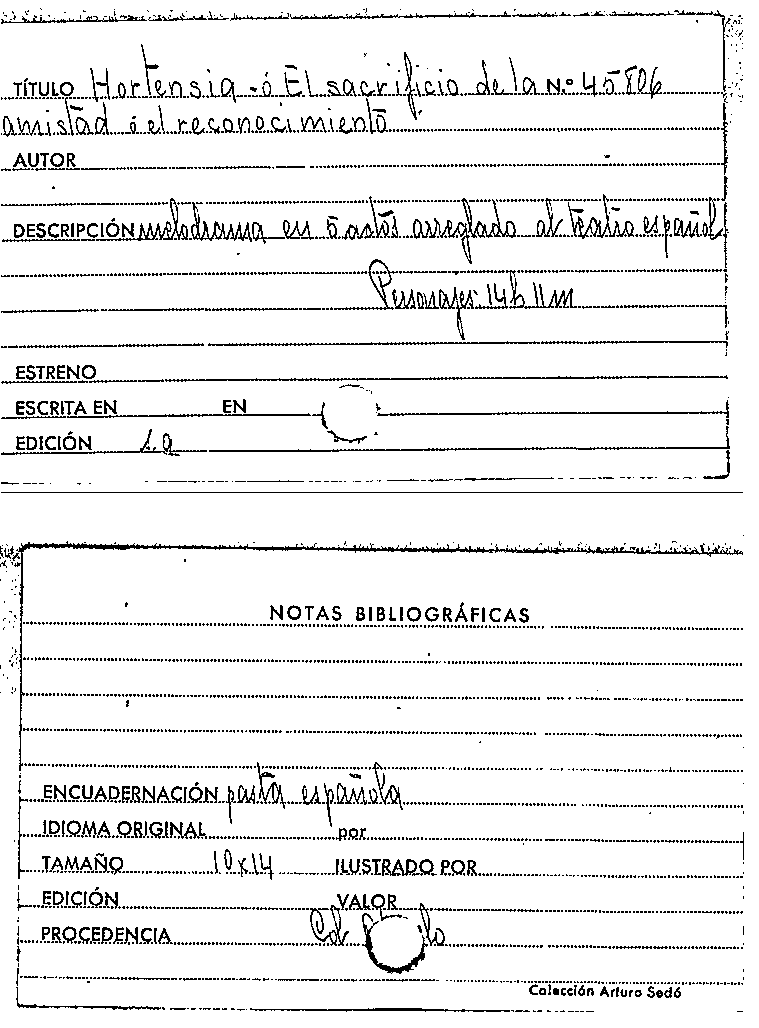 TÍTULO Hortensia - ó El sacrificio de la N.º 45806
amistad ó el reconocimiento
AUTOR
DESCRIPCIÓN melodrama en 5 actos arreglado al teatro español
Personajes 14 h 11 m
ESTRENO
ESCRITA EN EN
EDICIÓN 1.a
NOTAS BIBLIOGRÁFICAS
ENCUADERNACIÓN pasta española
IDIOMA ORIGINAL por
TAMAÑO 10x14 ILUSTRADO POR
EDICIÓN VALOR
PROCEDENCIA Col.
Colección Arturo Sedó